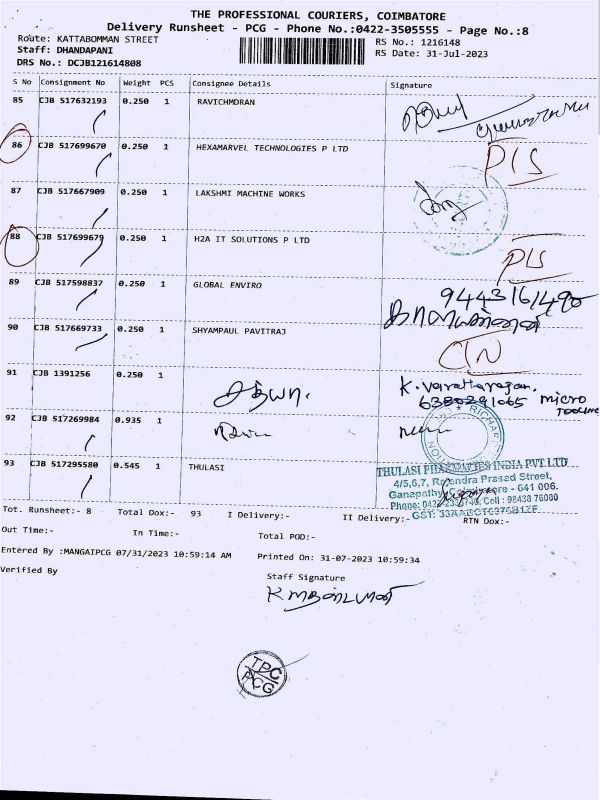 THE PROFESSIONAL COURIERS, COIMBATORE
Delivery Runsheet - PCG - Phone No.:0422-3505555 - Page No.:8
Route: KATTABOMMAN STREET
RS No.: 1216148
Staff: DHANDAPANI
RS Date: 31-Jul-2023
DRS No.: DCJB121614808
S No Consignment No Weight PCS Consignee Details Signature
85 CJB 517632193 0.250 1 RAVICHMDRAN
86 CJB 517699670 0.250 1 HEXAMARVEL TECHNOLOGIES P LTD
PIS
87 CJB 517667909 0.250 1 LAKSHMI MACHINE WORKS
88 CJB 517699679 0.250 1 H2A IT SOLUTIONS P LTD
PIS
89 CJB 517598837 0.250 1 GLOBAL ENVIRO
9443161490
90 CJB 517669733 0.250 1 SHYAMPAUL PAVITRAJ
C/N
91 CJB 1391256 0.250 1
சத்யா. K. Varatharajan.
6380291065 MICRO
92 CJB 517269984 0.935 1
93 CJB 517295580 0.545 1 THULASI
THULASI PHARMACIES INDIA PVT LTD
4/5,6,7, Rajendra Prasad Street,
Ganapathy, Coimbatore - 641 006.
Cell : 98438 76000
Tot. Runsheet:- 8 Total Dox:- 93 I Delivery:- II Delivery:- RTN Dox:-
Out Time:- In Time:- Total POD:-
Entered By :MANGAIPCG 07/31/2023 10:59:14 AM Printed On: 31-07-2023 10:59:34
Verified By
Staff Signature
TPC
PCG